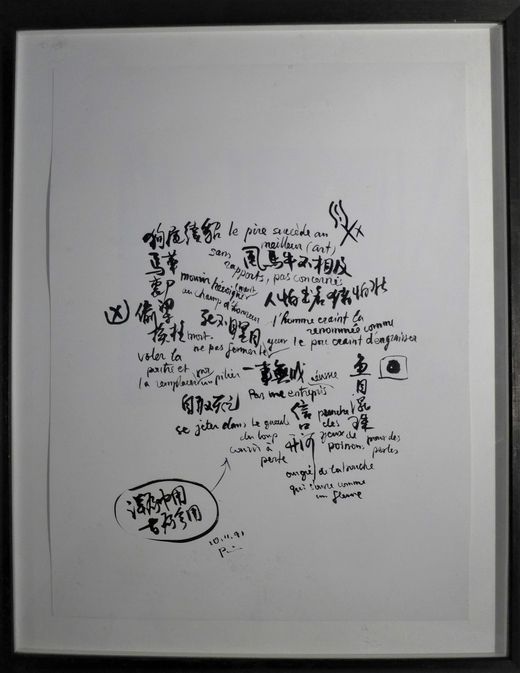 狗尾续貂 le pire succède au
meilleur (art)
sans 風馬牛不相及
rapports, pas concernés
馬革
裹尸 mourir héroïquement
au champ d'honneur
人怕出名猪怕壮
l'homme craint la
renommée comme
le porc craint d'engraisser
凶 偷梁
换柱
死不瞑目
mort
ne pas fermer les yeux
voler la
poutre et
la remplacer un pilier
一事無成 réussie
Pas une entreprise
魚
目
混
珠
自取死亡
se jeter dans la gueule
du loup
courir à
perte
信
口
开河
prendre
des
yeux de
poisson, pour des
perles
au gré de la bouche
qui s'ouvre comme
un fleuve
洋为中用
古为今用
10.11.91